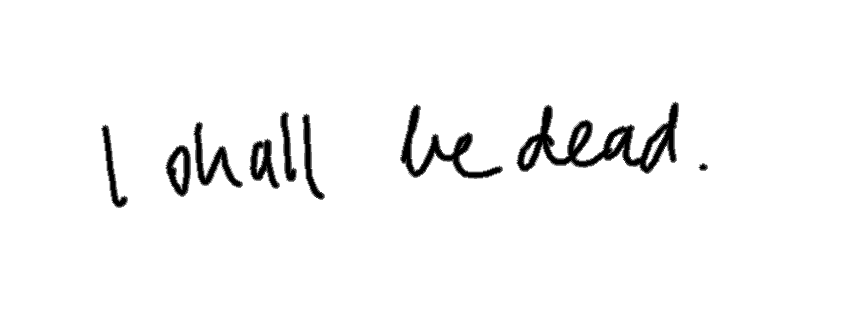 I shall be dead.